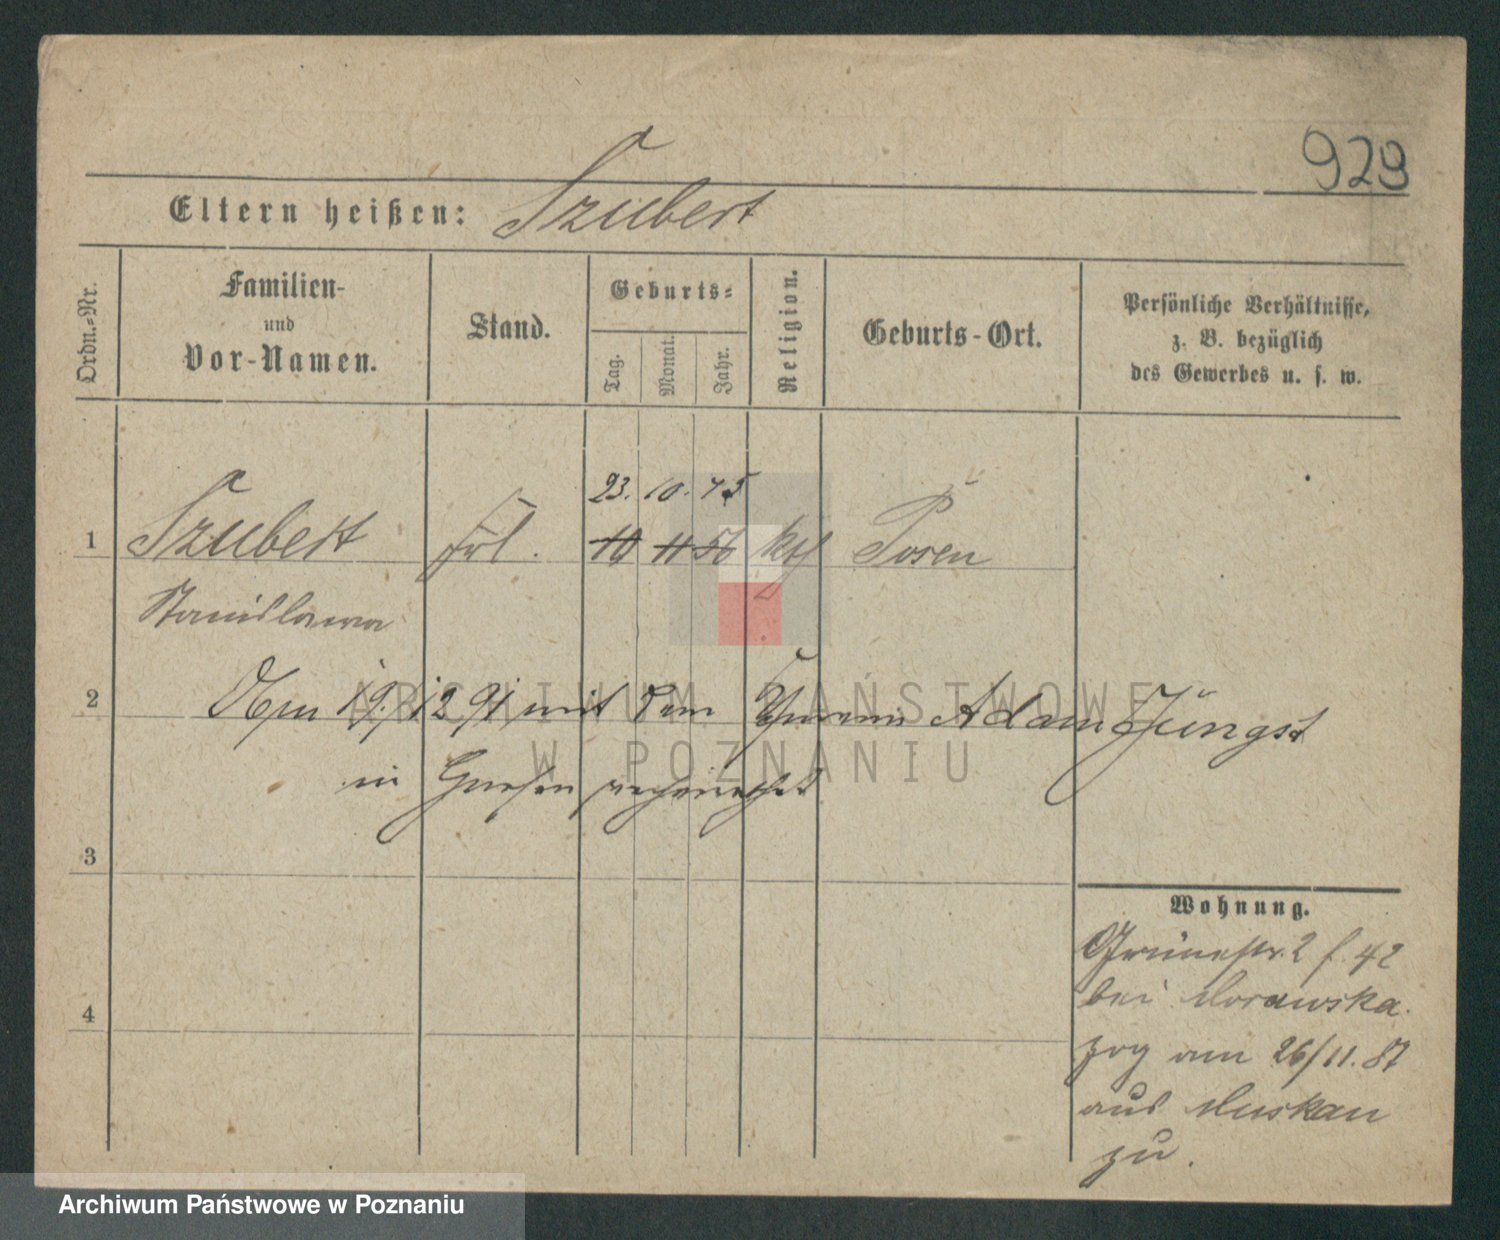 923
Eltern heißen: Szubert
Ordn.=Nr.
Familien-
und
Vor-Namen.
Stand.
Geburts=
Tag.
Monat.
Jahr.
Religion.
Geburts-Ort.
Persönliche Verhältnisse,
z. B. bezüglich
des Gewerbes u. s. w.
23. 10. 75
1 Szubert Frl. 10 11 56 kth Posen
Stanislawa
2 Am 19./12 91 mit dem Adam Jüngst
in Gnesen verheirathet
3
4
Wohnung.
Grünestr. 2 f. 42
bei Morawska.
zog am 26/11. 87
aus Muskau
zu.
ARCHIWUM PAŃSTWOWE
W POZNANIU
Archiwum Państwowe w Poznaniu